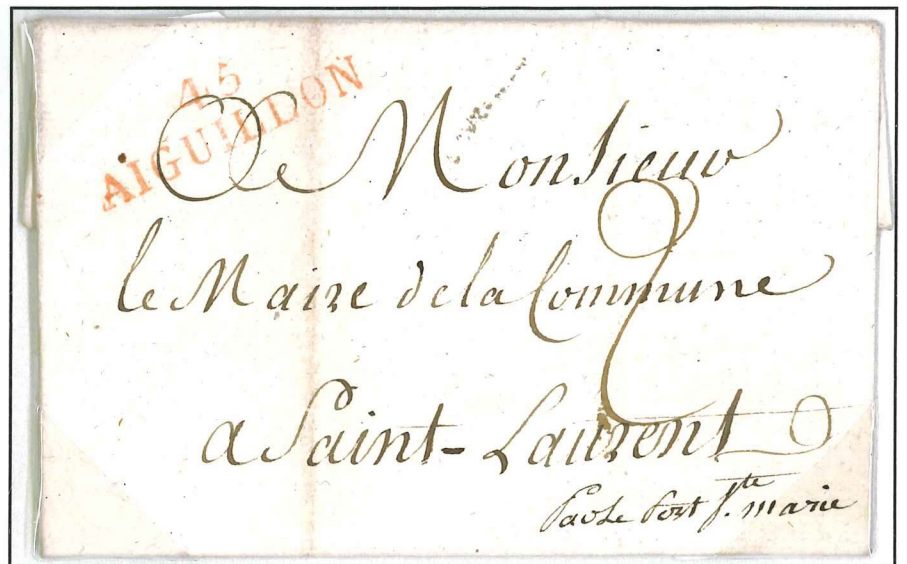 45
AIGUILLON
A Monsieur
le Maire de la Commune
a Saint-Laurent
Par le Port Ste. marie
2